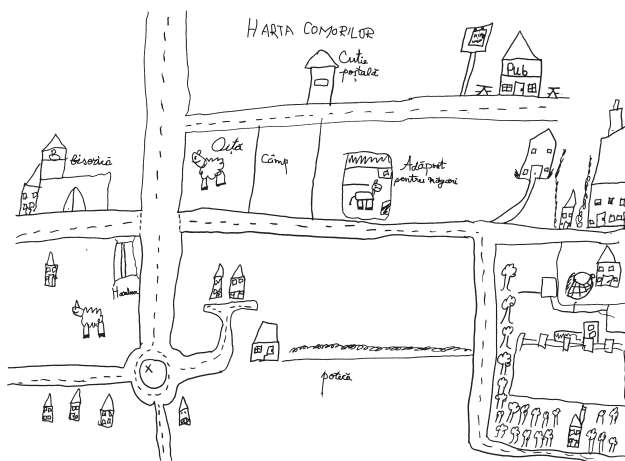 HARTA COMORILOR
Cutie
poștală
Pub
biserică
Oiță
Câmp
Adăpost
pentru măgari
Hambar
X
potecă